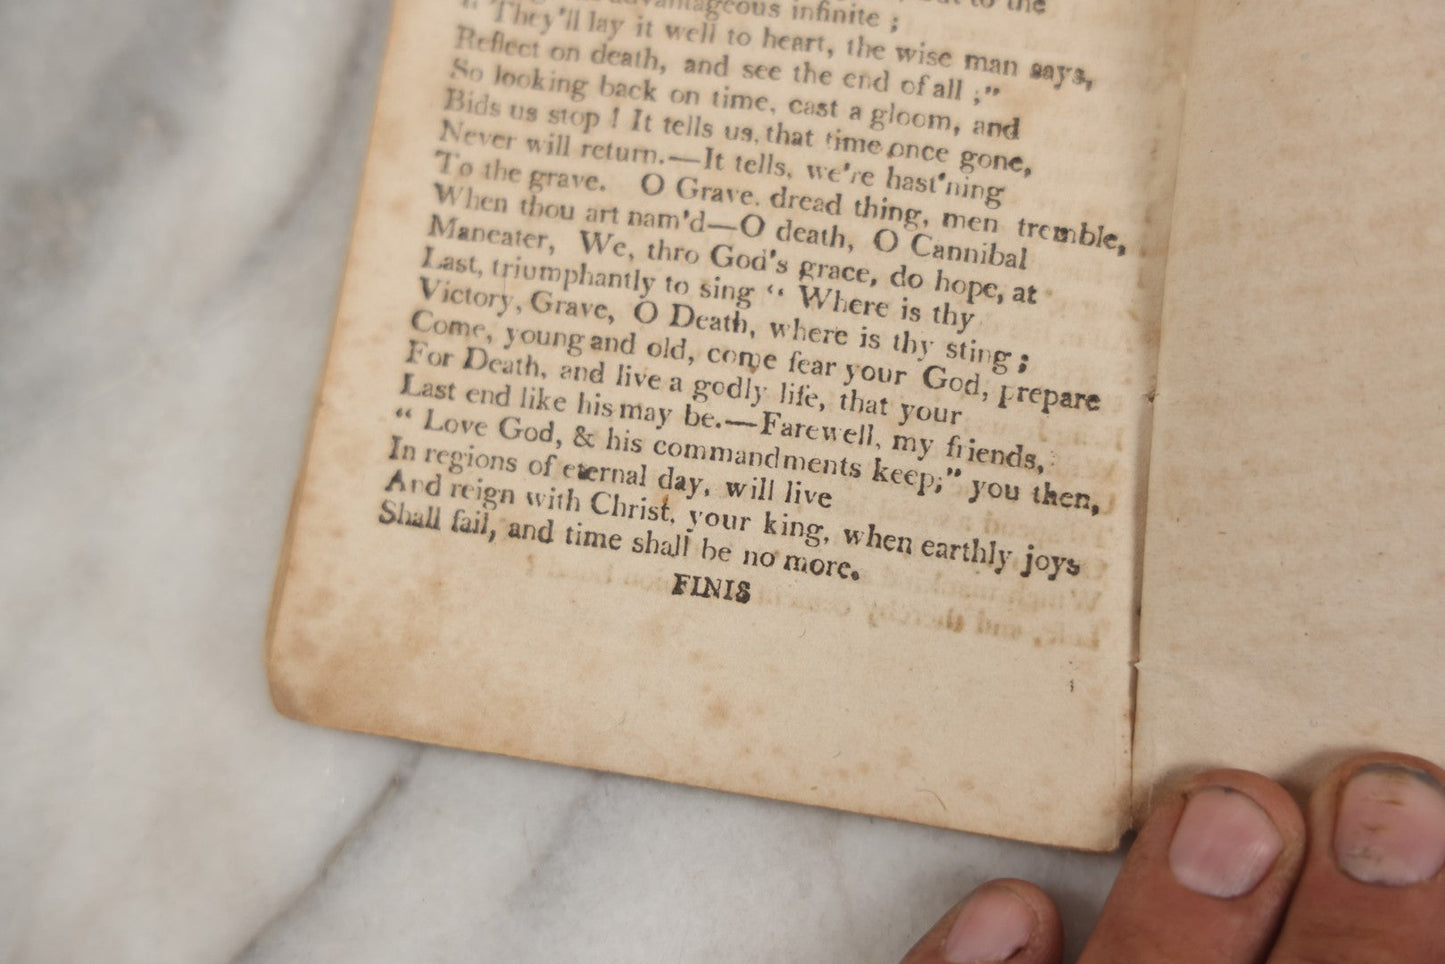 to the
advantageous infinite ;
" They'll lay it well to heart, the wise man says,
Reflect on death, and see the end of all ;"
So looking back on time, cast a gloom, and
Bids us stop ! It tells us, that time once gone,
Never will return.—It tells, we're hast'ning
To the grave. O Grave. dread thing, men tremble,
When thou art nam'd—O death, O Cannibal
Maneater, We, thro God's grace, do hope, at
Last, triumphantly to sing " Where is thy
Victory, Grave, O Death, where is thy sting ;
Come, young and old, come fear your God, prepare
For Death, and live a godly life, that your
Last end like his may be.—Farewell, my friends,
" Love God, & his commandments keep," you then,
In regions of eternal day, will live
And reign with Christ, your king, when earthly joys
Shall fail, and time shall be no more.
FINIS